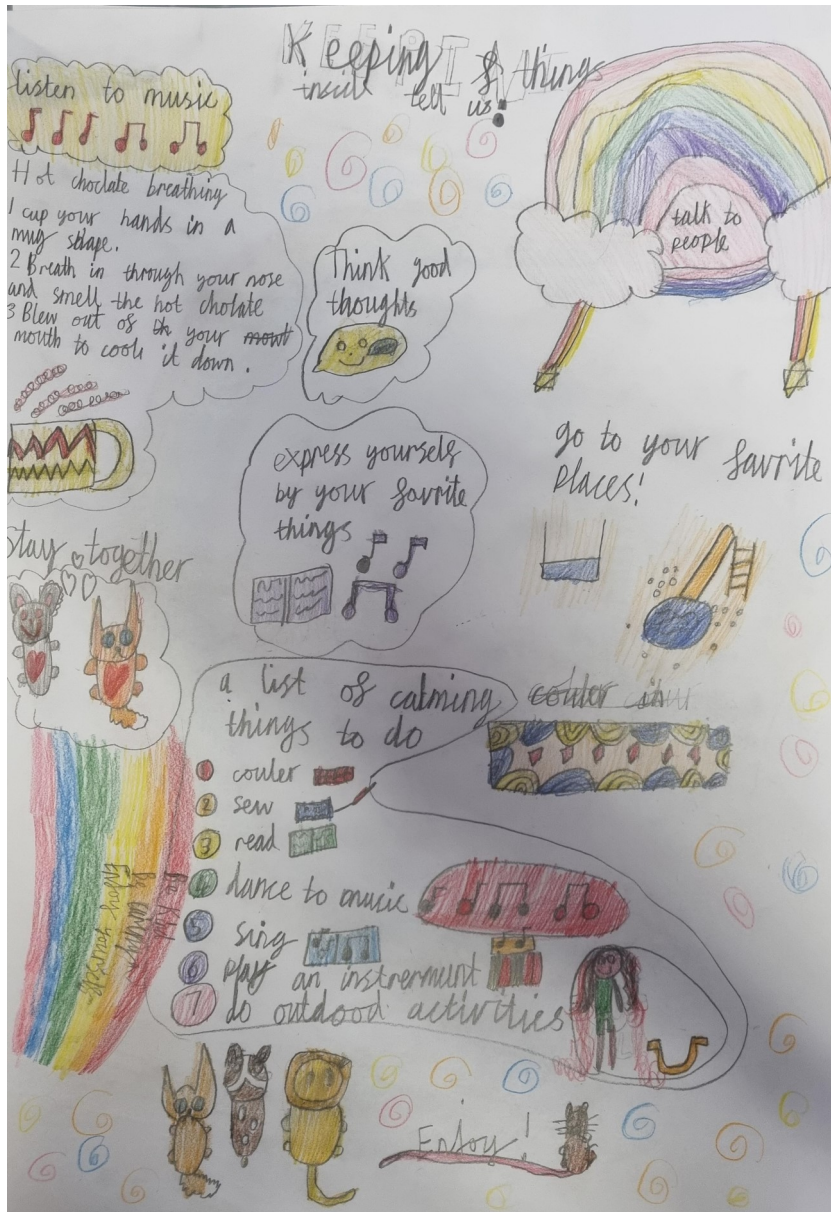 Keeping things
inside tell us!
listen to music
Hot choclate breathing
1 cup your hands in a
mug shape.
2 Breath in through your nose
and smell the hot cholate
3 Blew out of th your mowt
mouth to cook it down.
Think good
thoughts
talk to
people
express yourself
by your favrite
things
go to your favrite
places!
Stay together
a list of calming
things to do
couler
2 sew
3 read
4 dance to music
5 sing
6 play an instrermunt
7 do outdood activities
couler in
Be kind
Enjoy yourself
Enjoy!